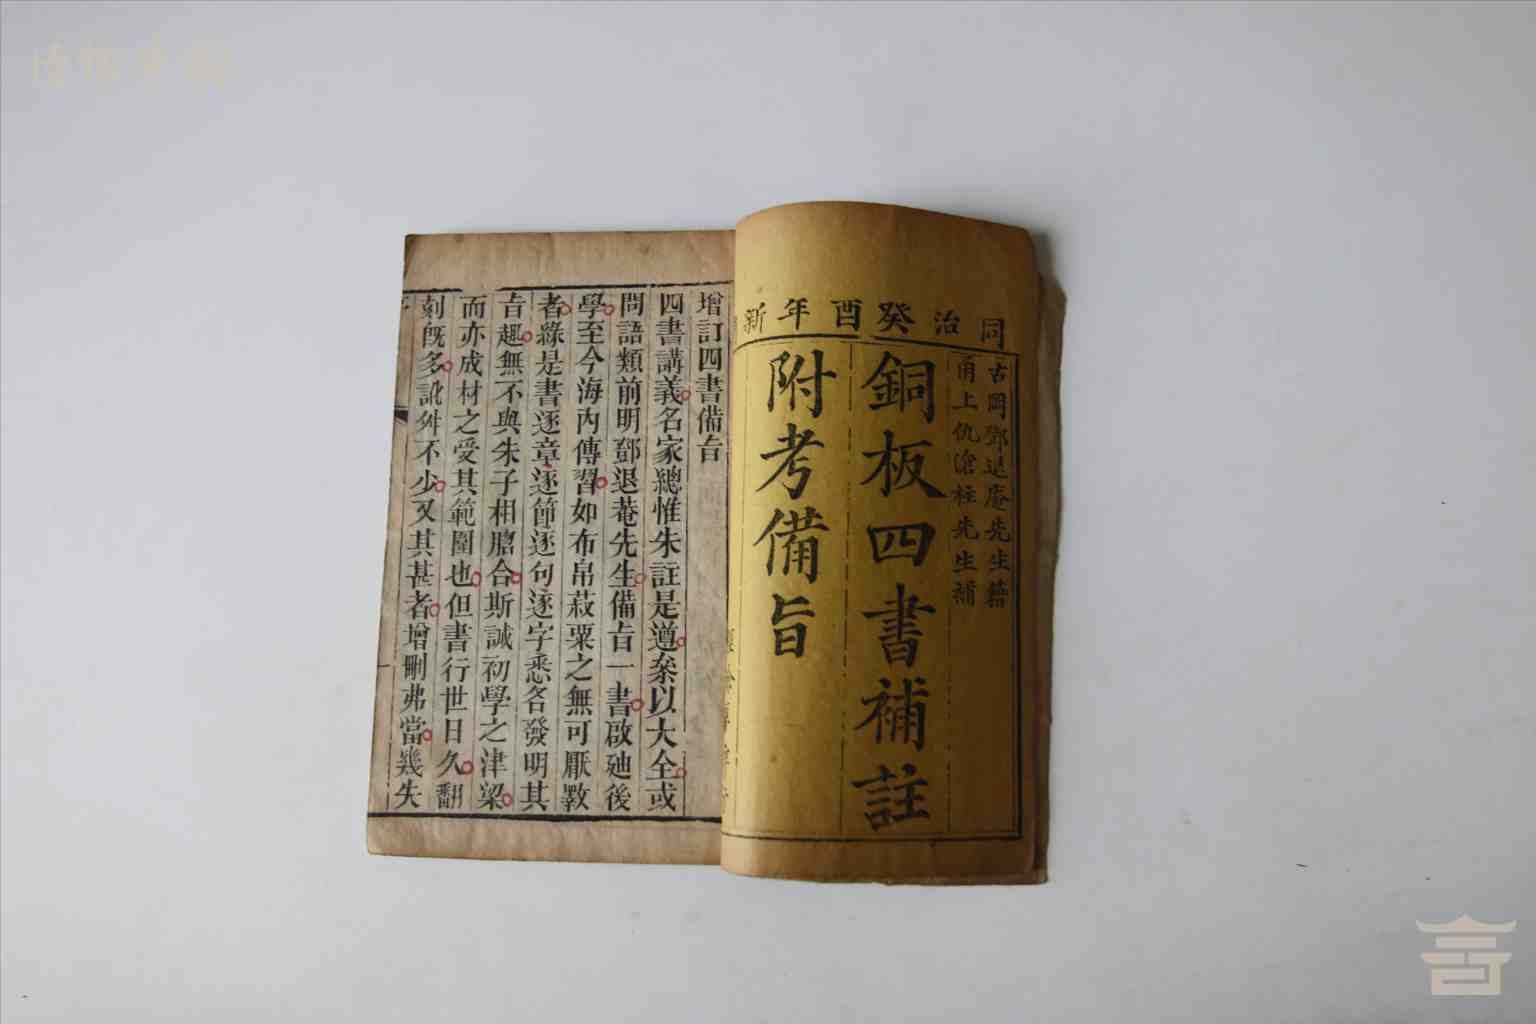 同治癸酉年新
古岡鄧退庵先生藉
甬上仇滄柱先生補
銅板四書補註
附考備旨
增訂四書備旨
四書講義名家總惟朱註是遵叅以大全或
問語類前明鄧退菴先生備旨一書啟廸後
學至今海內傳習如布帛菽粟之無可厭斁
者緣是書逐章逐節逐句逐字悉各發明其
旨趣無不與朱子相脗合斯誠初學之津梁
而亦成材之受其範圍也但書行世日久翻
刻旣多訛舛不少又其甚者增刪弗當幾失